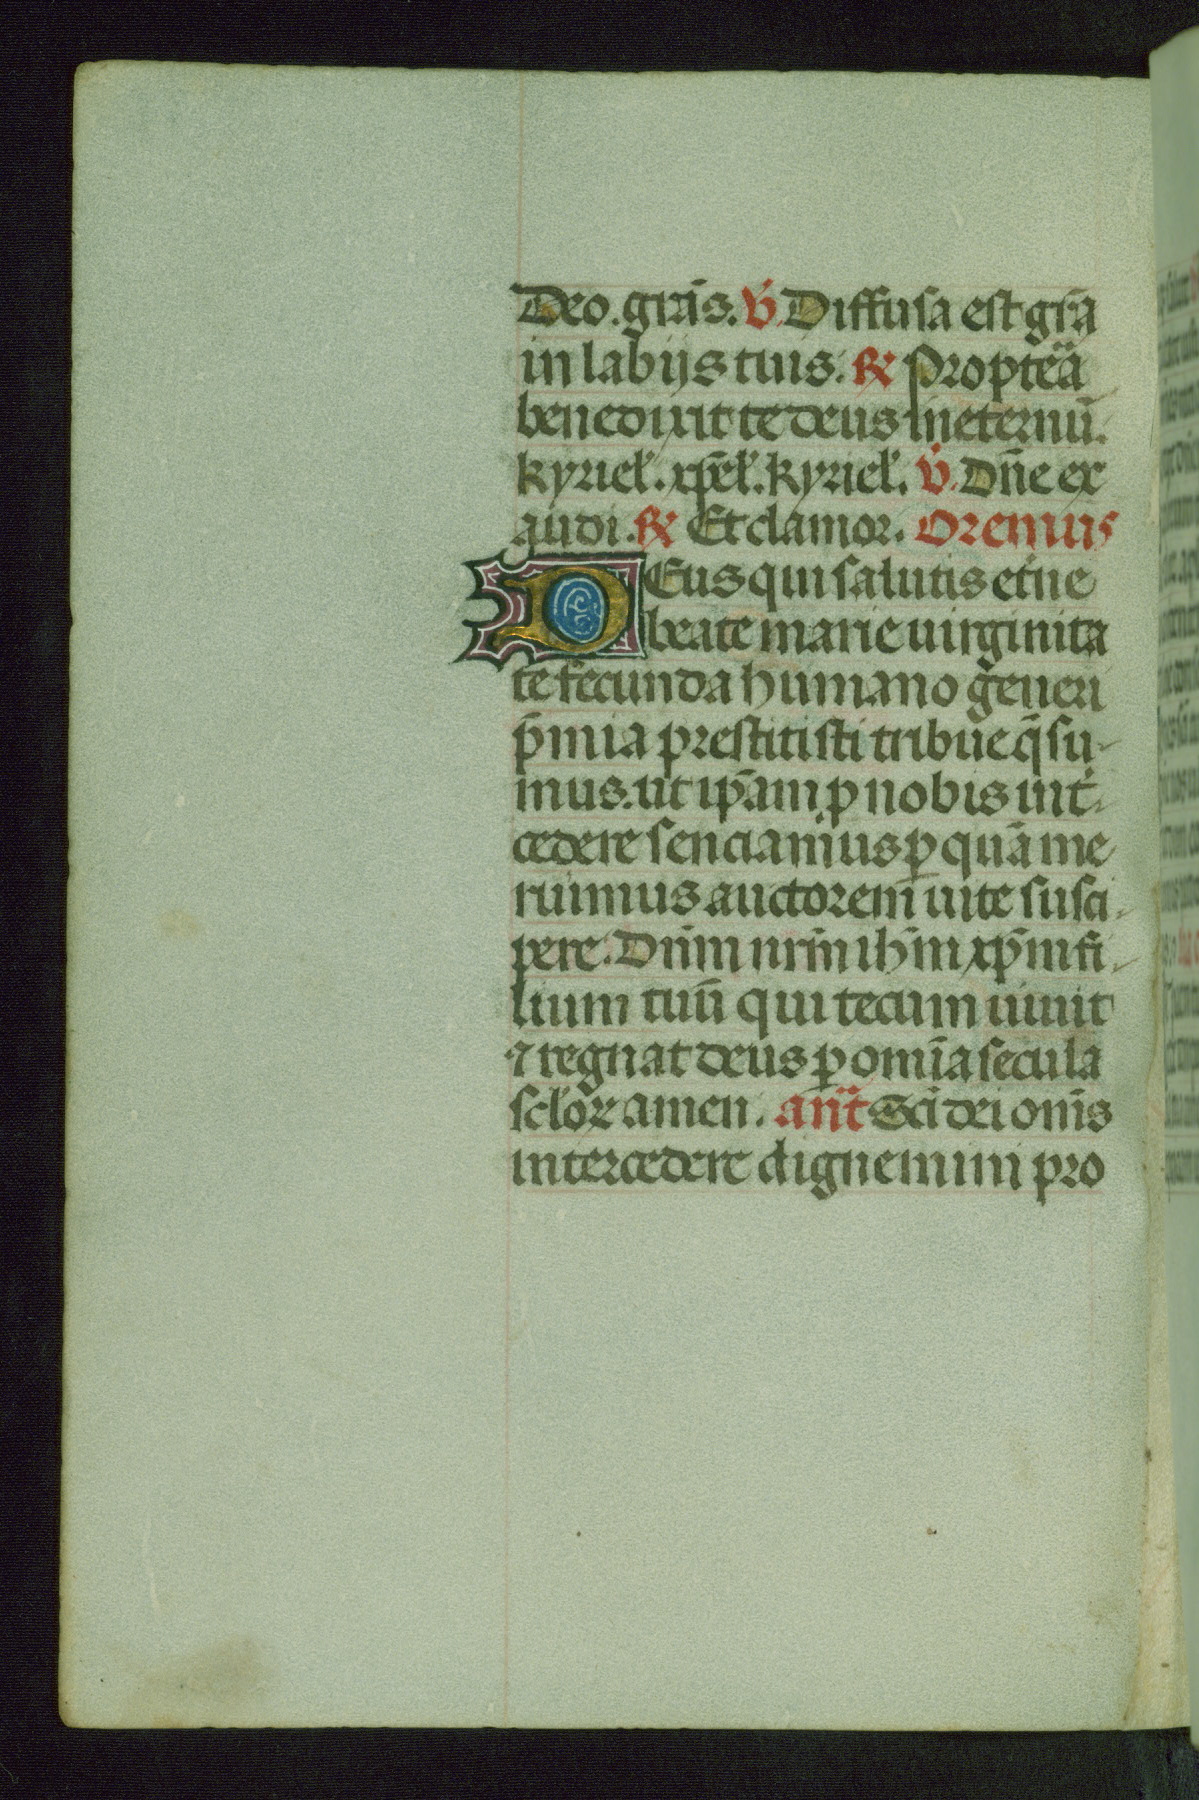 Deo. grãs. v̄. Diffusa est grã
in labijs tuis. ℟ Propteã
benedixit te deus in eternũ.
kyriel̃. xp̃el̃. kyriel̃. v̄. Dñe ex
audi. ℟ Et clamor. Oremus
DEus qui salutis et̃ne
beate marie uirginita
te fecunda humano generi
p̃mia prestitisti tribue q̃su-
mus. ut ip̃am ꝓ nobis int̃-
cedere senciamus ꝑ quã me
ruimus auctorem uite susci-
pere. Dñm nr̃m ih̃m xp̃m fi-
lium tuũ qui tecum uiuit
⁊ regnat deus ꝑ om̃ia secula
sclõꝝ amen. añt̃ Sc̃i dei om̃s
intercedere dignemini pro